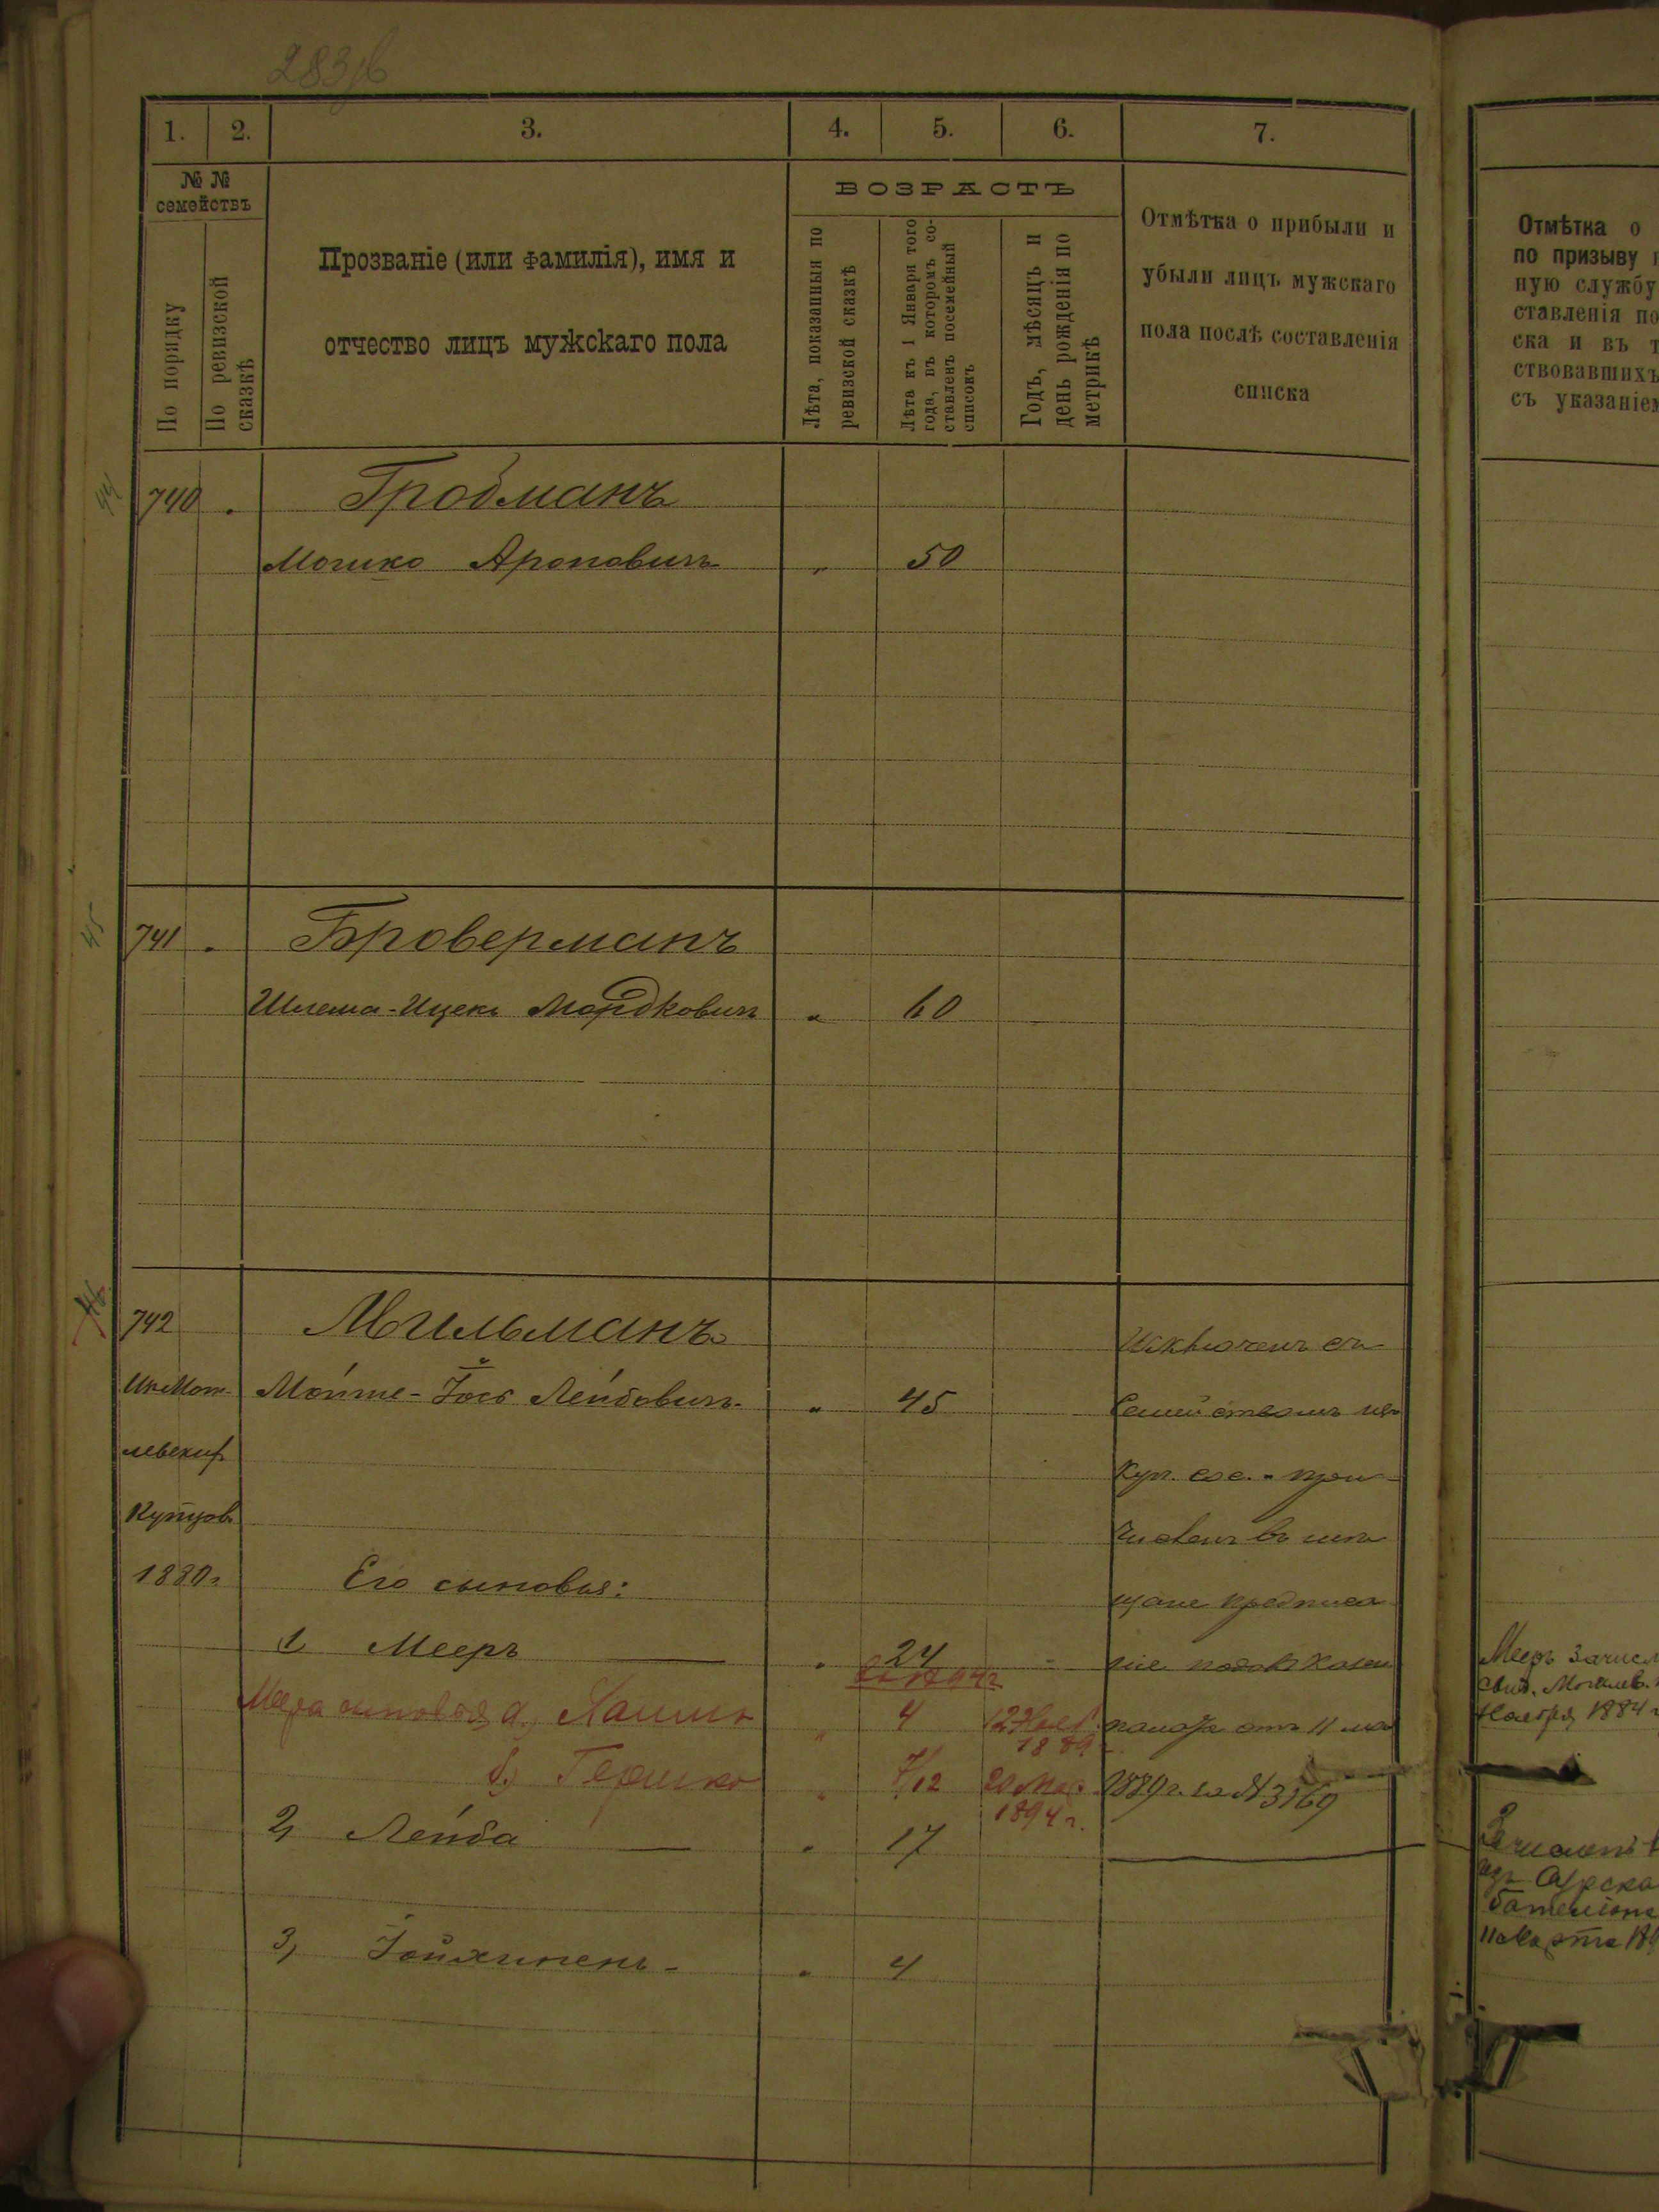 283 об
1. 2. 3. 4. 5. 6. 7.
№ №
семействъ
По порядку
По ревизской
сказкѣ
Прозваніе (или фамилія), имя и
отчество лицъ мужскаго пола
ВОЗРАСТЪ
Лѣта, показанныя по
ревизской сказкѣ
Лѣта къ 1 Января того
года, въ которомъ со-
ставленъ посемейный
списокъ
Годъ, мѣсяцъ и
день рожденія по
метрикѣ
Отмѣтка о прибыли и
убыли лицъ мужскаго
пола послѣ составленія
списка
Отмѣтка о
по призыву
ную службу
ставленія по
ска и въ т
ствовавшихъ
съ указаніем
44
740 . Гробманъ
Мошко Ароновичъ " 50
45
741 . Броверманъ
Шлема-Ицекъ Мордковичъ " 60
46
742 Мильманъ
Исключенъ съ
Мойше-Іось Лейбовичъ " 45
Семействомъ изъ
куп. сос. и при
Купцовъ
численъ въ мѣ
1880г. Его сыновья:
щане предписа
1, Мееръ — " 24
ніе
къ 1894г
Меера сыновья, а, " 4 12 Нояб.
1889 г.
палаты отъ 11 мая
б) Гершко " 7/12 20 Мар.
1894 г.
1889 г. за № 3169
2, Лейба — " 17
3, " 4
Мееръ зачисл
свид. Могилев.
Ноября 1884 г
Зачисленъ
баталіона
11 Марта 18